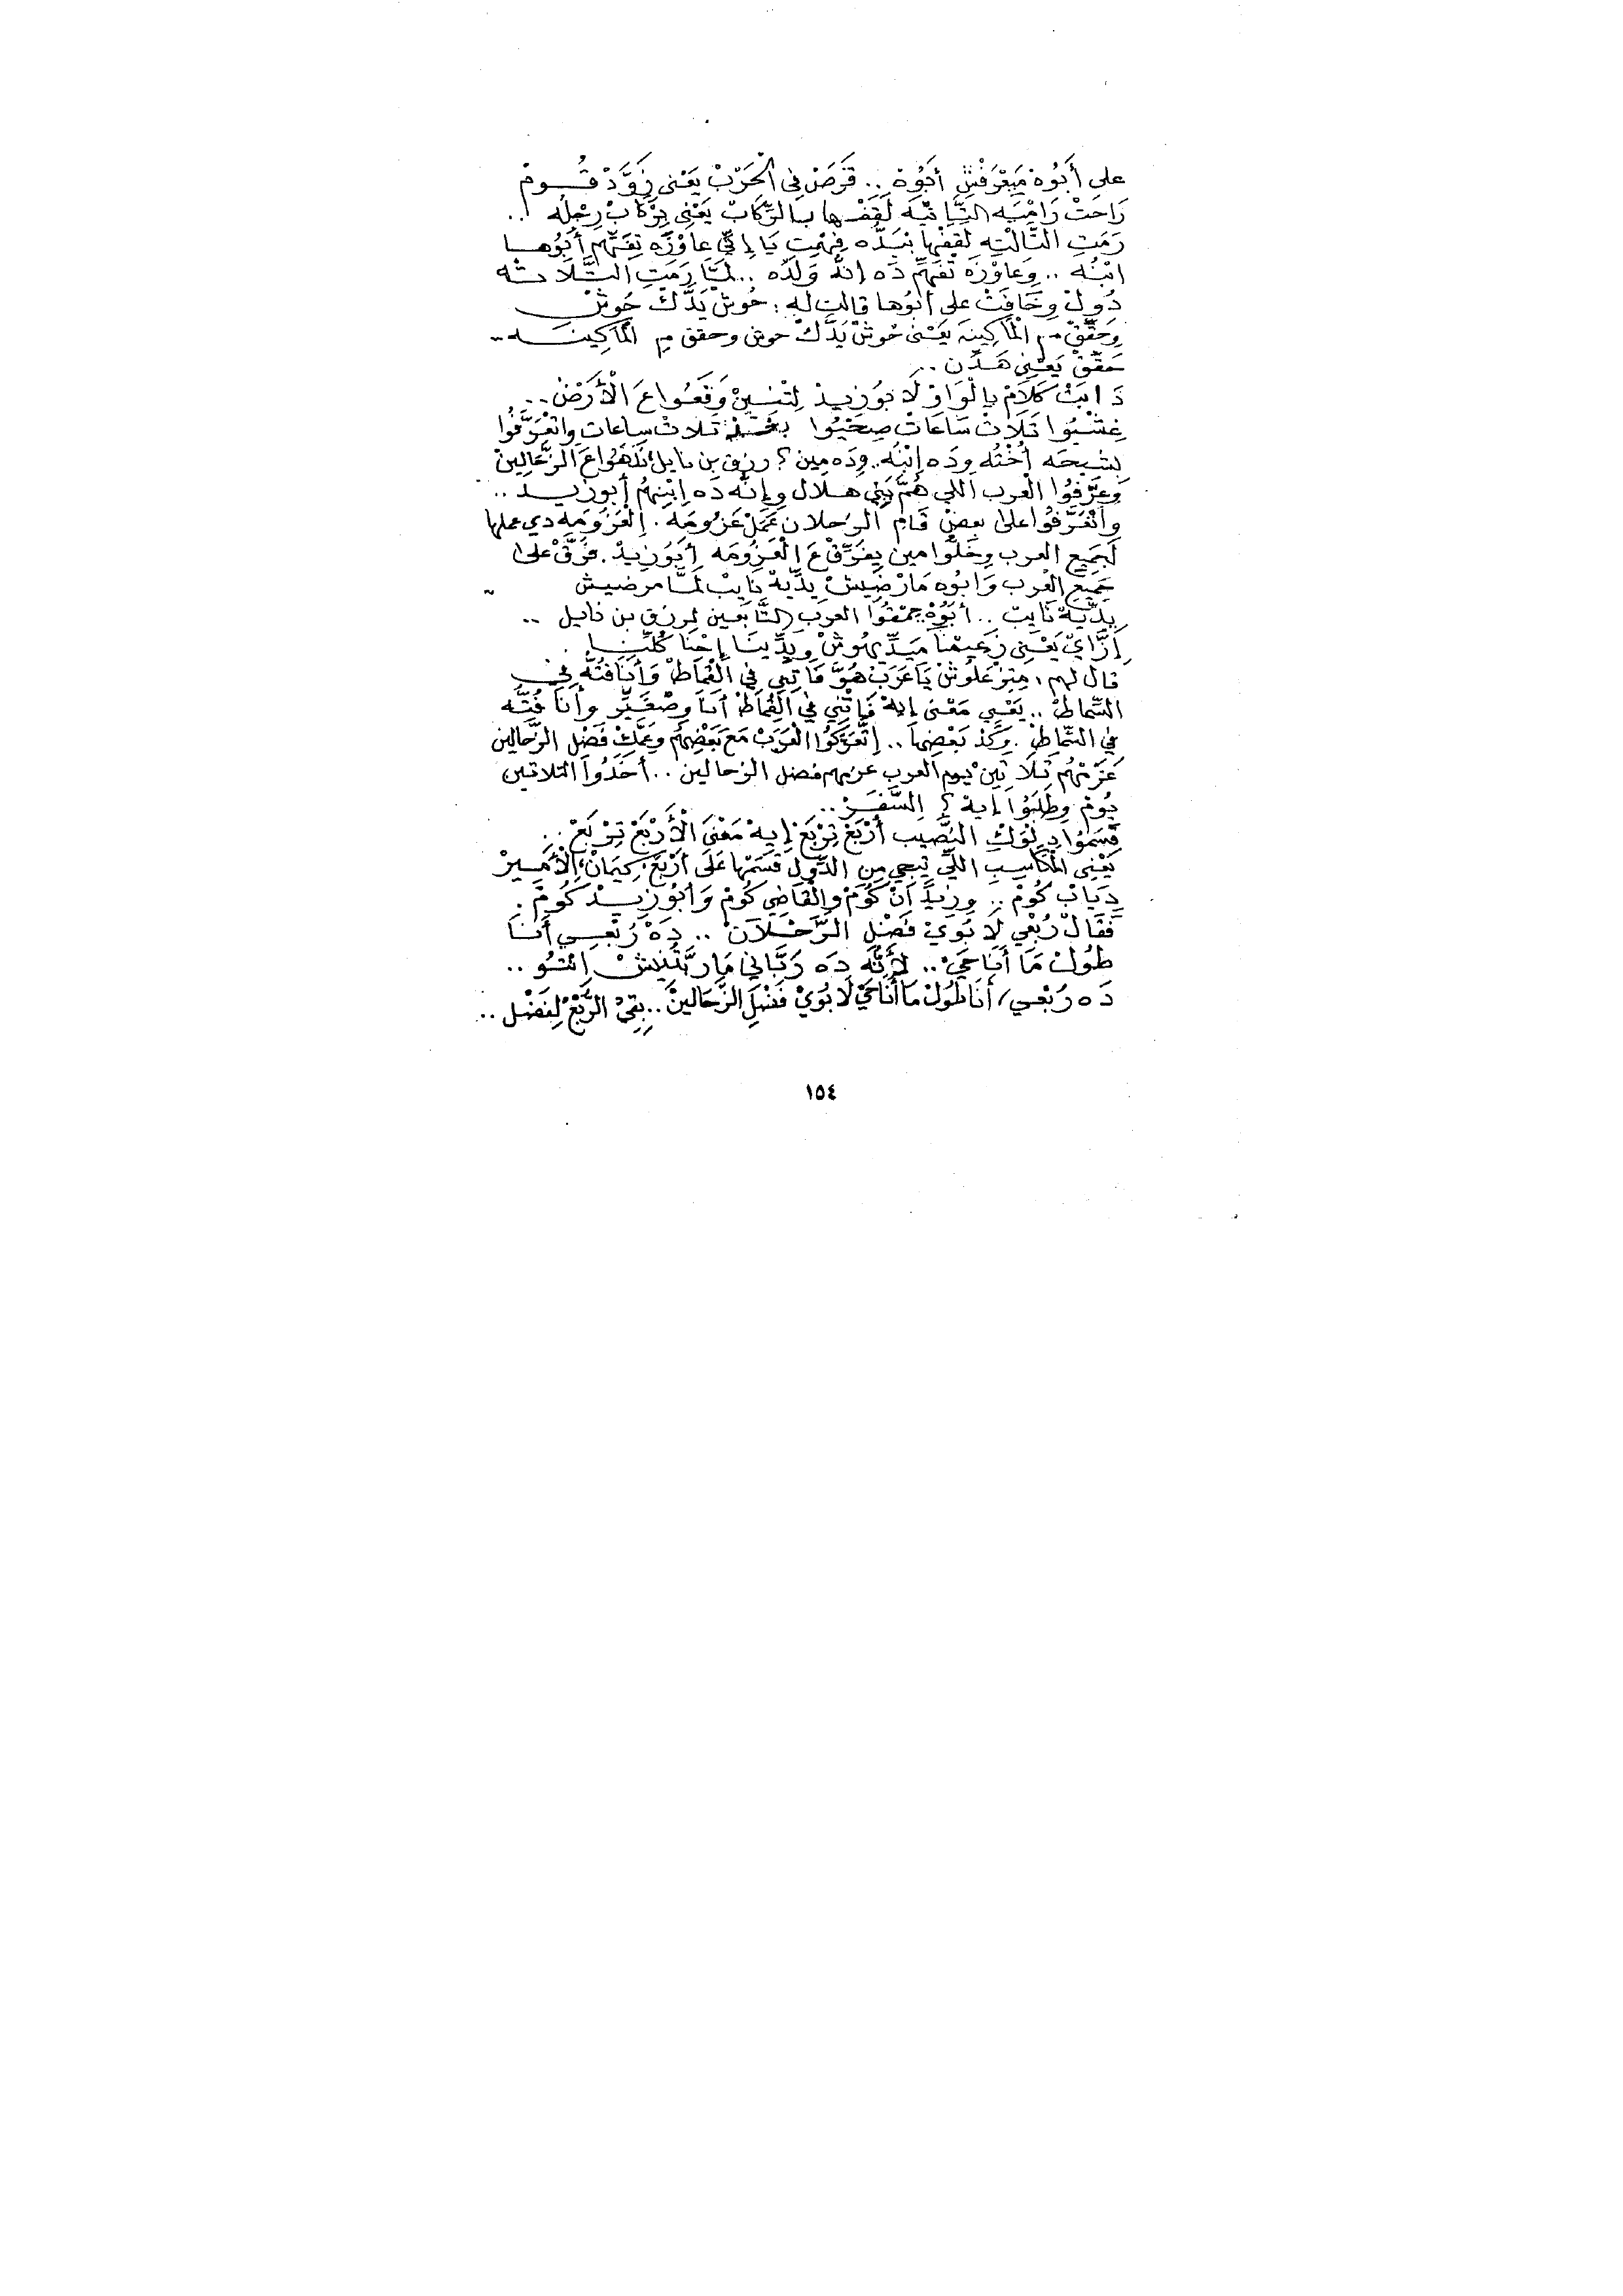 على أَبُوهْ مَيِعْرَفْشِ أَبُوهْ .. قَرَصْ فِي الْحَرْبْ يَعْنِي زَوَّدْ قُـــومْ
رَاحَتْ رَامْيَه التَّانْيَه لَقَفْـها بـالرِّكَابْ يَعْنِي بِرْكَابْ رِجْلُه ..
رَمَتِ التَّالْتِه لَقَفْها بْيَدُّه فِهْمِتِ يَا إِلِّي عاوْزَه تِفَهِّمْ أَبُوهــا
ابْنُـه .. وِعاوْزَه تْفَهِّمْ دَه إِنُّه وَلَدُه .. لَمَّا رَمَتِ التَّـلَاتـه
دُولْ وِخَافِتْ على أَبُوها قالت له : حُوشْ يَدَّكْ حُوشْ
وِحَقِّقْ م الْمَاكِينَه يَعْنِي حُوشْ يَدَّكْ حوش وحقق م الْمَاكِينَـــه ..
حَقِّقْ يَعْنِي هَـدِّن ..
دَابِتْ كَلَامْ بِالْوَاوْ لَابُوزِيدْ لِتْنِينْ وَقَعُـوا عَ الْأَرْضْ ..
غِشْيُوا تَلَاتْ سَاعَاتْ صِحْيُوا بعْد تَـلاتْ ساعات واتْعَرَّفُوا
بشيحَه أُخْتُه وِدَه إِبْنُه .. وِدَه مِين ؟ رزق بن نايل نَدَهُوا عَ الزَّحَّالِينْ
وَعَرَّفُوا الْعرب اللي هُمَّ بَنِي هـلال وِإِنُّه دَه اِبْنِهُمْ أبوزيـــد ..
وِاتْعَرَّفُوا على بعضْ قَامْ الزحلان عَمَلْ عَزُومَه . اِلْعَزُومَه دي عملها
لَجَمِيع العرب وِخَلُّوا مين يِفَرَّقْ عَ الْعَزُومَه أَبُوزِيدْ . فَرَّقْ على
جَمِيعِ الْعرب وَابُوه مَارْضِيشْ يِدِّيهْ نَايِبْ لَمَّا مرضيش
يِدِّيهْ نَايِبْ .. أَبُوهْ جمْقُوا العرب التَّابْعين لرزق بن نايل ..
اِزَّايْ يَعْنِي زَعِيمْنَا مَيِدِّيهُوشْ وِيِدِّينَا إِحْنَا كُلِّنَا .
قال لهم : مَتِزْعَلُوشْ يَا عَرَبْ هُوَّ فَاتْنِي فِي الْقُمَاطْ وَأَنَا فُتُّه فِي
السُّمَاطْ .. يَعْنِي مَعْنى إيهْ فَاتْنِي فِي الْقُمَاطْ أَنَا وِصْغَيَّرْ وأنا فُتُّه
في السُّمَاطْ . وَخَدْ بَعْضِهَا .. اِتْعَرَكُوا الْعَرَبْ مَعَ بَعْضِهُمْ وِعَمَّكْ فَضْلِ الزَّحَّالين
عَزَمْهُمْ تَلَاتِينْ يوم العرب عزمهم فضل الزحالين .. أَخَدُوا التلاتين
يُومْ وِطَلَبُوا إيه ؟ اِلسَّفَـرْ ..
قَسَمُوا دِلْوَكِ النَّصِيب أَرْبَعْ تِرْبَعْ إِيهْ مَعْنَى الْأَرْبَعْ تِرْبَعْ ..
يَعْنِي الْمَكَاسِبِ اللِّي تِيجِي مِنِ الدُّوَلْ قَسَمْهَا عَلَى أَرْبَعْ كِيمَانْ ، الْأَمِـيرْ
دِيَابْ كُومْ .. وِزِيدَانْ كُومْ وِالْقَاضِي كُومْ وَأَبُوزِيـدْ كُومْ .
فَقَالْ رُبْعِي لَابُويْ فَضْلِ الزَّحْـلَانْ .. دَهْ رُبْعِـي أَنَـا
طُولْ مَا أَنَا حَيّْ .. لِأَنُّه دَه رَبَّانِي مَا رَبِّتْنِيشْ اِنْتُـو ..
دَه رُبْعِي / أَنَا طُولْ مَا أَنَا حَيّْ لَابُويْ فَضْلِ الزَّحَالينْ .. بِقِي الرُّبْعْ لِفَضْـل ..
١٥٤